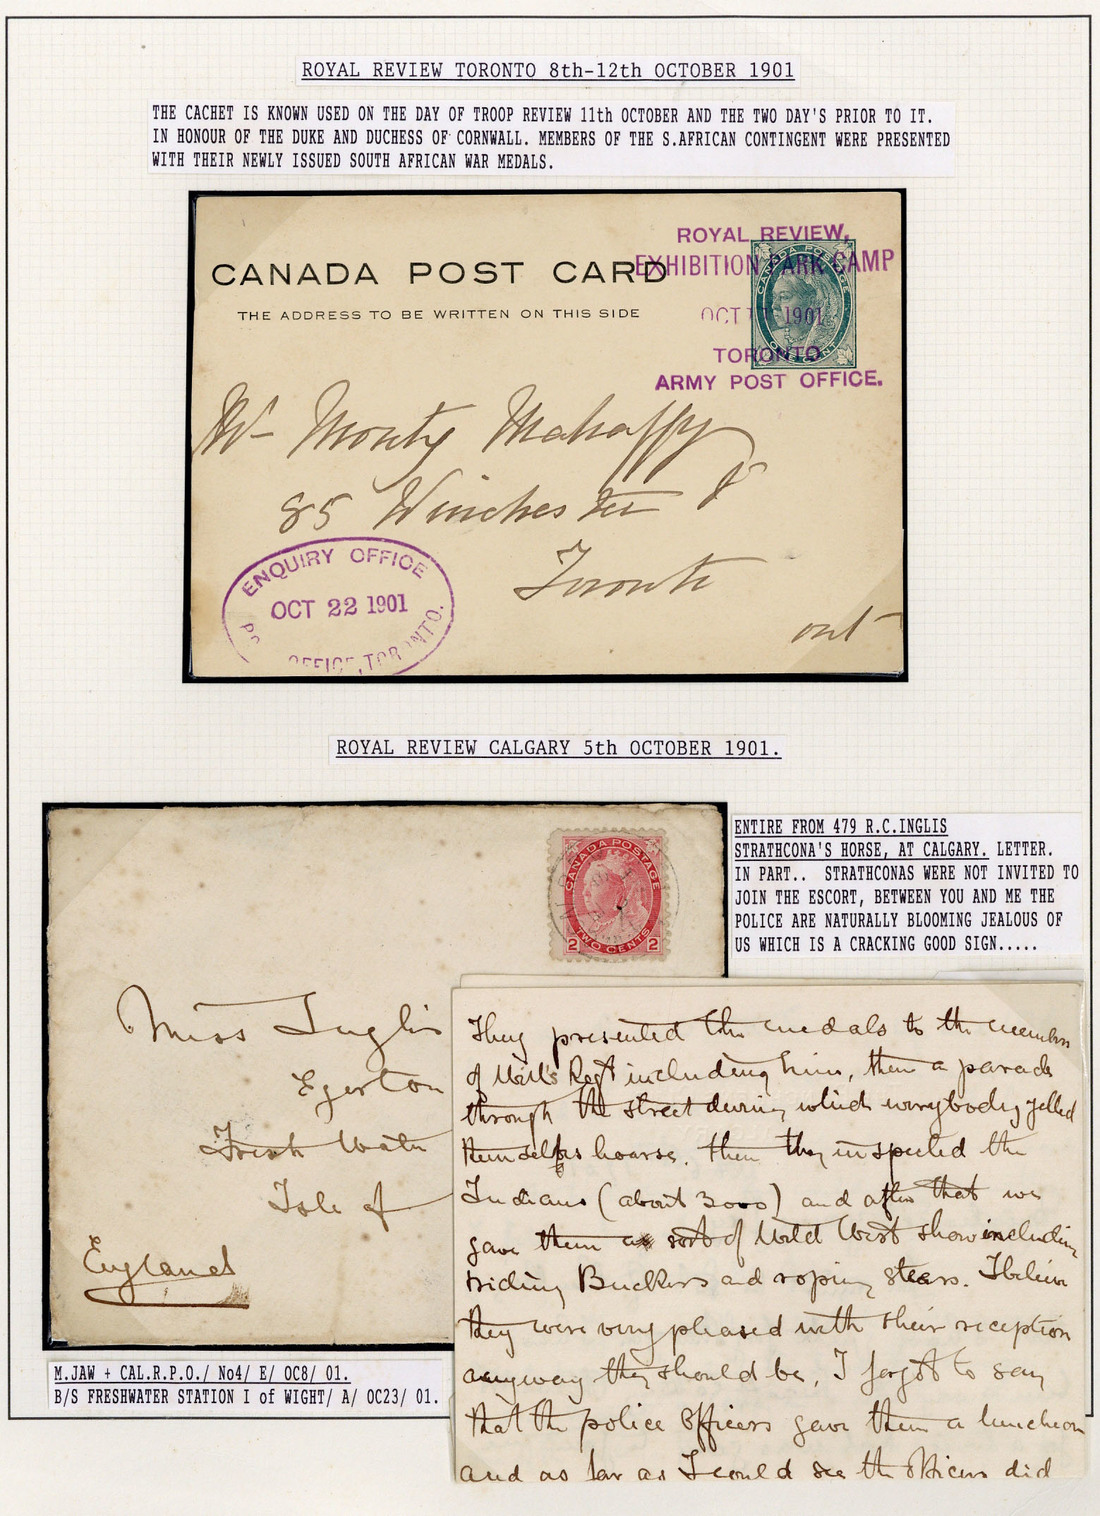 ROYAL REVIEW TORONTO 8th-12th OCTOBER 1901
THE CACHET IS KNOWN USED ON THE DAY OF TROOP REVIEW 11th OCTOBER AND THE TWO DAY'S PRIOR TO IT.
IN HONOUR OF THE DUKE AND DUCHESS OF CORNWALL. MEMBERS OF THE S.AFRICAN CONTINGENT WERE PRESENTED
WITH THEIR NEWLY ISSUED SOUTH AFRICAN WAR MEDALS.
ROYAL REVIEW,
EXHIBITION PARK CAMP
OCT 1901
TORONTO
ARMY POST OFFICE.
CANADA POSTAGE
ONE CENT
CANADA POST CARD
THE ADDRESS TO BE WRITTEN ON THIS SIDE
Mr Monty Mahaffy
85 Winchester
Toronto
Ont
ENQUIRY OFFICE
OCT 22 1901
OFFICE, TORONTO.
ROYAL REVIEW CALGARY 5th OCTOBER 1901.
CANADA POSTAGE
2 TWO CENTS 2
ENTIRE FROM 479 R.C.INGLIS
STRATHCONA'S HORSE, AT CALGARY. LETTER.
IN PART.. STRATHCONAS WERE NOT INVITED TO
JOIN THE ESCORT, BETWEEN YOU AND ME THE
POLICE ARE NATURALLY BLOOMING JEALOUS OF
US WHICH IS A CRACKING GOOD SIGN.....
Miss Inglis
Egerton
Fresh Water
Isle of
England
They presented the medals to the members
of Regt including him, then a parade
through the street during which everybody yelled
themselfs hoarse. then they inspected the
Indians (about 3000) and after that we
gave them a sort of Wild West show including
riding Buckers and roping stears. I believe
they were very pleased with their reception
anyway they should be, I forgot to say
that the police officers gave them a luncheon
and as far as I could see the officers did
M.JAW + CAL.R.P.O./ No4/ E/ OC8/ 01.
B/S FRESHWATER STATION I of WIGHT/ A/ OC23/ 01.